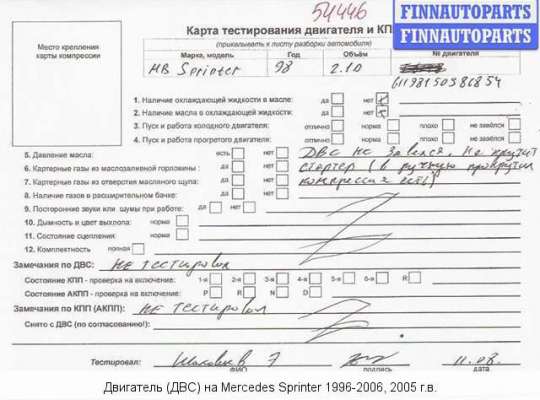 54446
FINNAUTOPARTS
FINNAUTOPARTS
Карта тестирования двигателя и КП
(прикалывать к листу разборки автомобиля)
Место крепления карты компрессии
Марка, модель Год Объём № двигателя
MB Sprinter 98 2.10
61198150386854
1. Наличие охлаждающей жидкости в масле: да нет
2. Наличие масла в охлаждающей жидкости: да нет
3. Пуск и работа холодного двигателя: отлично норма плохо не завёлся
4. Пуск и работа прогретого двигателя: отлично норма плохо не завёлся
5. Давление масла: есть нет ДВС не завелся. Не крутит
6. Картерные газы из маслозаливной горловины: да нет стартер (в ручную прокрутил
7. Картерные газы из отверстия масляного щупа: да нет компрессия есть)
8. Наличие газов в расширительном бачке: да нет
9. Посторонние звуки или шумы при работе: да нет
10. Дымность и цвет выхлопа: норма
11. Состояние сцепления: норма
12. Комплектность полная
Замечания по ДВС: не тестировал
Состояние КПП - проверка на включение: 1-я 2-я 3-я 4-я 5-я 6-я R
Состояние АКПП - проверка на включение: P R N D
Замечания по КПП (АКПП): не тестировал
Снято с ДВС (по согласованию!):
Тестировал: 11.08.
ФИО подпись дата
Двигатель (ДВС) на Mercedes Sprinter 1996-2006, 2005 г.в.